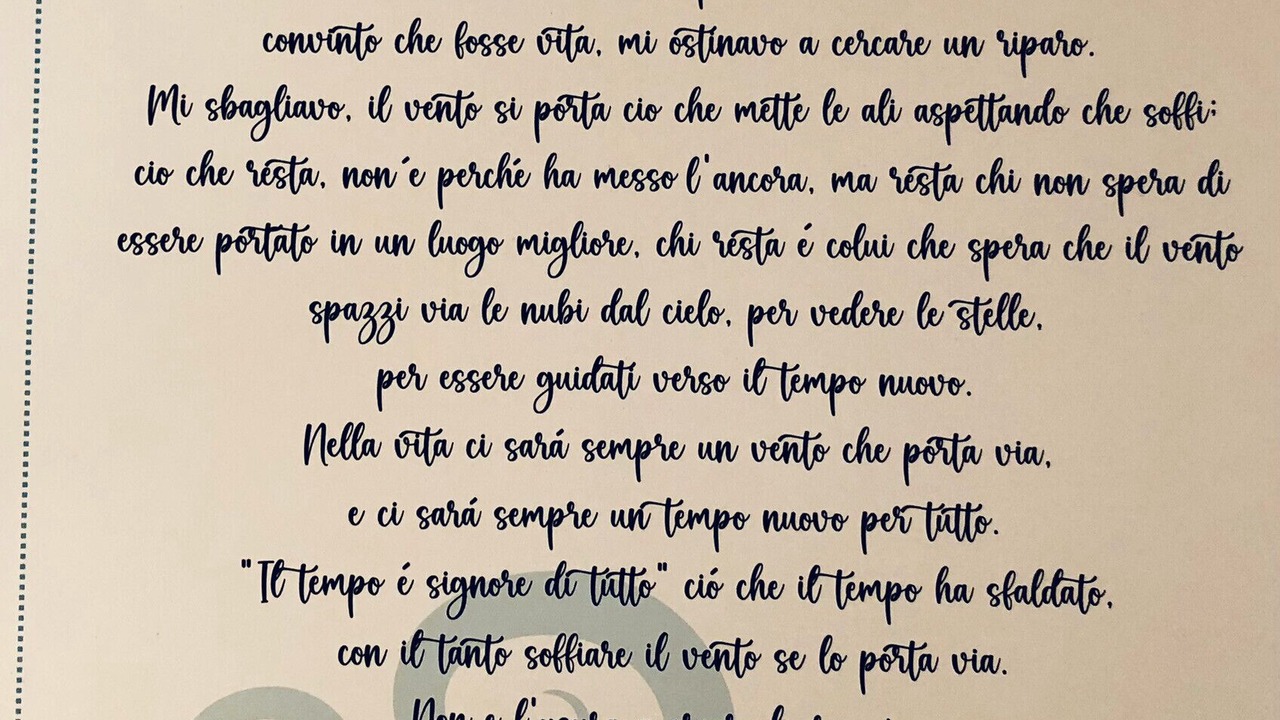 convinto che fosse vita, mi ostinavo a cercare un riparo.
Mi sbagliavo, il vento si porta cio che mette le ali aspettando che soffi;
cio che resta, non é perché ha messo l'ancora, ma resta chi non spera di
essere portato in un luogo migliore, chi resta é colui che spera che il vento
spazzi via le nubi dal cielo, per vedere le stelle,
per essere guidati verso il tempo nuovo.
Nella vita ci sará sempre un vento che porta via,
e ci sará sempre un tempo nuovo per tutto.
"Il tempo é signore di tutto" ció che il tempo ha sfaldato,
con il tanto soffiare il vento se lo porta via.